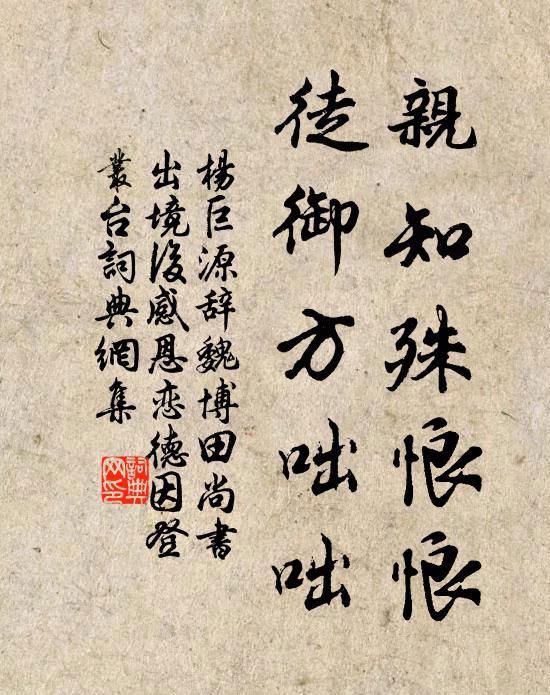 親知殊悢悢
徒御方咄咄
楊巨源辞魏博田尚書
出境後感恩恋德因登
叢台詞典網集
詞典
网印